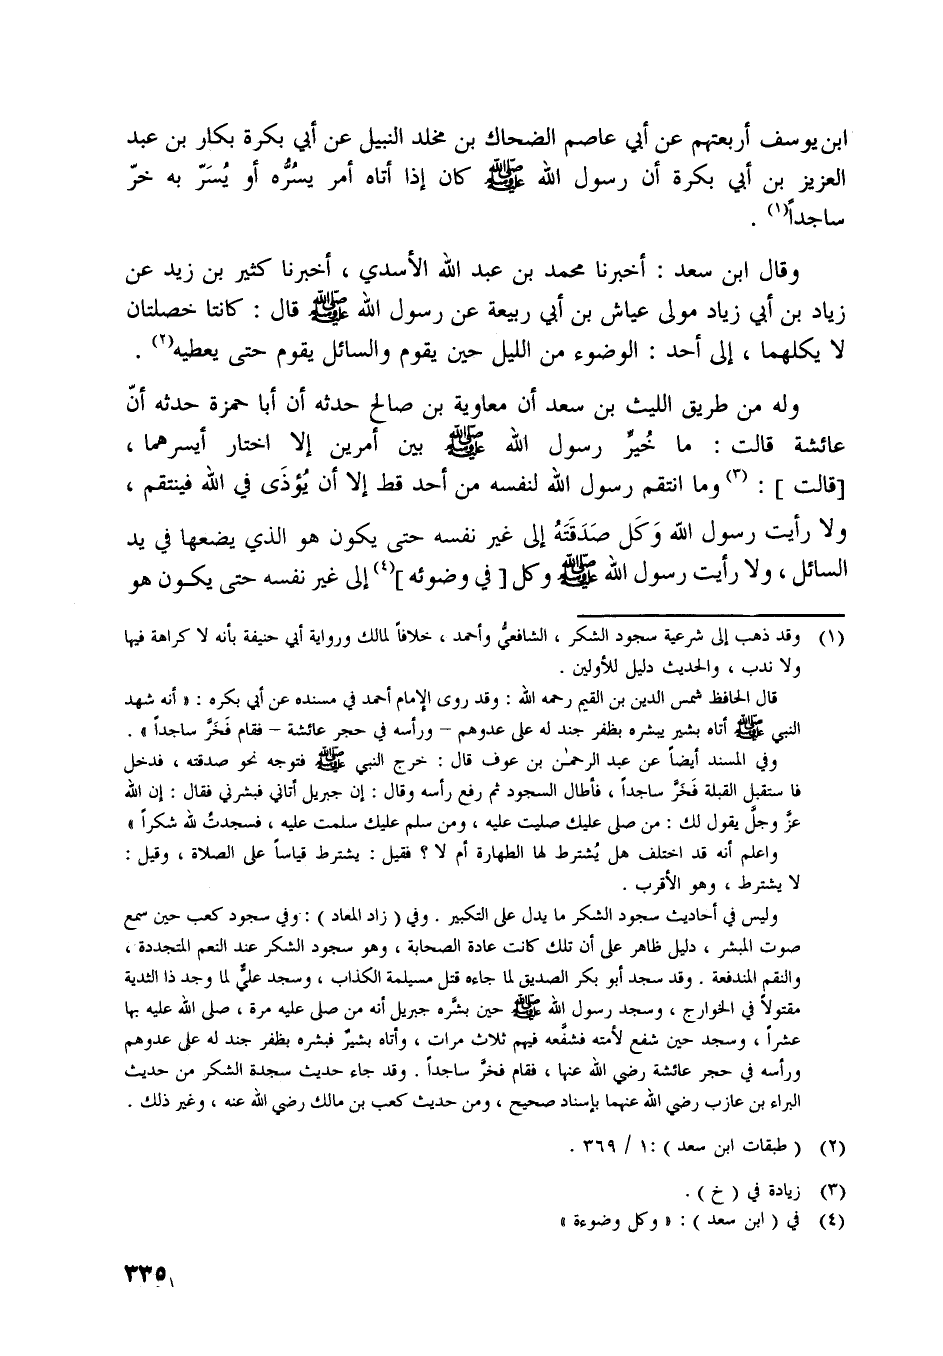 ابن يوسف أربعتهم عن أبي عاصم الضحاك بن مخلد النبيل عن أبي بكرة بكار بن عبد
العزيز بن أبي بكرة أن رسول الله ﷺ كان إذا أتاه أمر يسُرُّه أو يُسَرّ به خرّ
ساجداً(١) .
وقال ابن سعد : أخبرنا محمد بن عبد الله الأسدي ، أخبرنا كثير بن زيد عن
زياد بن أبي زياد مولى عياش بن أبي ربيعة عن رسول الله ﷺ قال : كانتا خصلتان
لا يكلهما ، إلى أحد : الوضوء من الليل حين يقوم والسائل يقوم حتى يعطيه(٢) .
وله من طريق الليث بن سعد أن معاوية بن صالح حدثه أن أبا حمزة حدثه أنّ
عائشة قالت : ما خُيرَّ رسول الله ﷺ بين أمرين إلا اختار أيسرهما ،
[قالت ] : (٣) وما انتقم رسول الله لنفسه من أحد قط إلا أن يُؤذَى في الله فينتقم ،
ولا رأيت رسول الله وَكَل صَدَقَتَهُ إلى غير نفسه حتى يكون هو الذي يضعها في يد
السائل ، ولا رأيت رسول الله ﷺ وكل [ في وضوئه ](٤) إلى غير نفسه حتى يكون هو
(١) وقد ذهب إلى شرعية سجود الشكر ، الشافعيُّ وأحمد ، خلافاً لمالك ورواية أبي حنيفة بأنه لا كراهة فيها
ولا ندب ، والحديث دليل للأولين .
قال الحافظ شمس الدين بن القيم رحمه الله : وقد روى الإمام أحمد في مسنده عن أبي بكره : « أنه شهد
النبي ﷺ أتاه بشير يبشره بظفر جند له على عدوهم – ورأسه في حجر عائشة – فقام فَخَرَّ ساجداً » .
وفي المسند أيضاً عن عبد الرحمٰن بن عوف قال : خرج النبي ﷺ فتوجه نحو صدقته ، فدخل
فا ستقبل القبلة فَخَرَّ ساجداً ، فأطال السجود ثم رفع رأسه وقال : إن جبريل أتاني فبشرني فقال : إن الله
عزَّ وجلَّ يقول لك : من صلى عليك صليت عليه ، ومن سلم عليك سلمت عليه ، فسجدتُ لله شكراً »
واعلم أنه قد اختلف هل يُشترط لها الطهارة أم لا ؟ فقيل : يشترط قياساً على الصلاة ، وقيل :
لا يشترط ، وهو الأقرب .
وليس في أحاديث سجود الشكر ما يدل على التكبير . وفي ( زاد المعاد ) : وفي سجود كعب حين سمع
صوت المبشر ، دليل ظاهر على أن تلك كانت عادة الصحابة ، وهو سجود الشكر عند النعم المتجددة ،
والنقم المندفعة . وقد سجد أبو بكر الصديق لما جاءه قتل مسيلمة الكذاب ، وسجد عليٌّ لما وجد ذا الثدية
مقتولاً في الخوارج ، وسجد رسول الله ﷺ حين بشَّره جبريل أنه من صلى عليه مرة ، صلى الله عليه بها
عشراً ، وسجد حين شفع لأمته فشفَّعه فيهم ثلاث مرات ، وأتاه بشيرٌ فبشره بظفر جند له على عدوهم
ورأسه في حجر عائشة رضي الله عنها ، فقام فخرَّ ساجداً . وقد جاء حديث سجدة الشكر من حديث
البراء بن عازب رضي الله عنهما بإسناد صحيح ، ومن حديث كعب بن مالك رضي الله عنه ، وغير ذلك .
(٢) ( طبقات ابن سعد ) :١ / ٣٦٩ .
(٣) زيادة في ( خ ) .
(٤) في ( ابن سعد ) : « وكل وضوءة »
٣٣٥